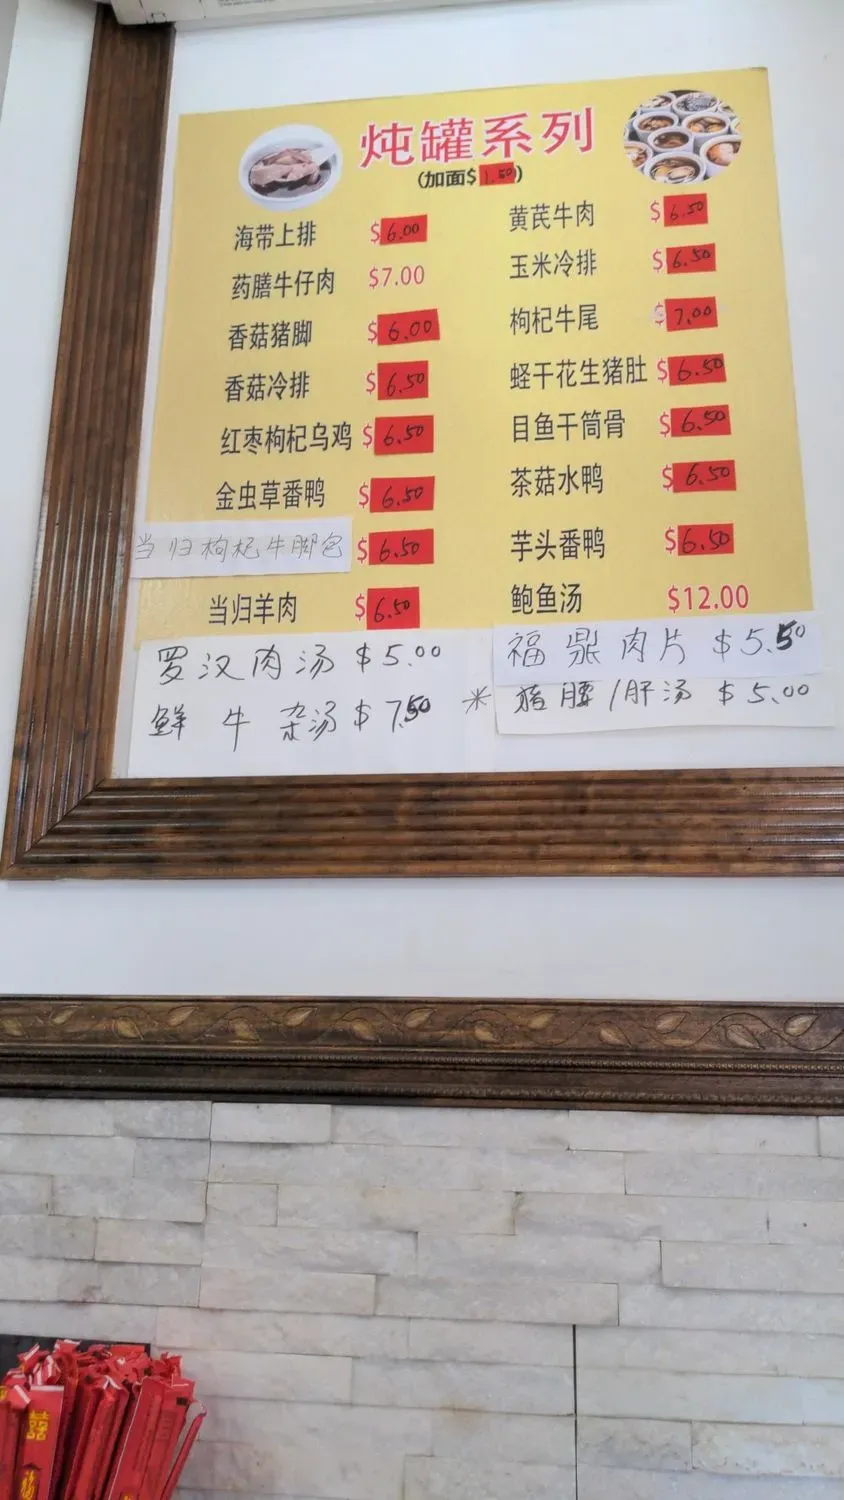 炖罐系列
(加面$1.50)
海带上排 $6.00
药膳牛仔肉 $7.00
香菇猪脚 $6.00
香菇冷排 $6.50
红枣枸杞乌鸡 $6.50
金虫草番鸭 $6.50
当归枸杞牛脚包 $6.50
当归羊肉 $6.50
罗汉肉汤 $5.00
鲜牛杂汤 $7.50
黄芪牛肉 $6.50
玉米冷排 $6.50
枸杞牛尾 $7.00
蛏干花生猪肚 $6.50
目鱼干筒骨 $6.50
茶菇水鸭 $6.50
芋头番鸭 $6.50
鲍鱼汤 $12.00
福鼎肉片 $5.50
米 猪腰/肝汤 $5.00
囍
福